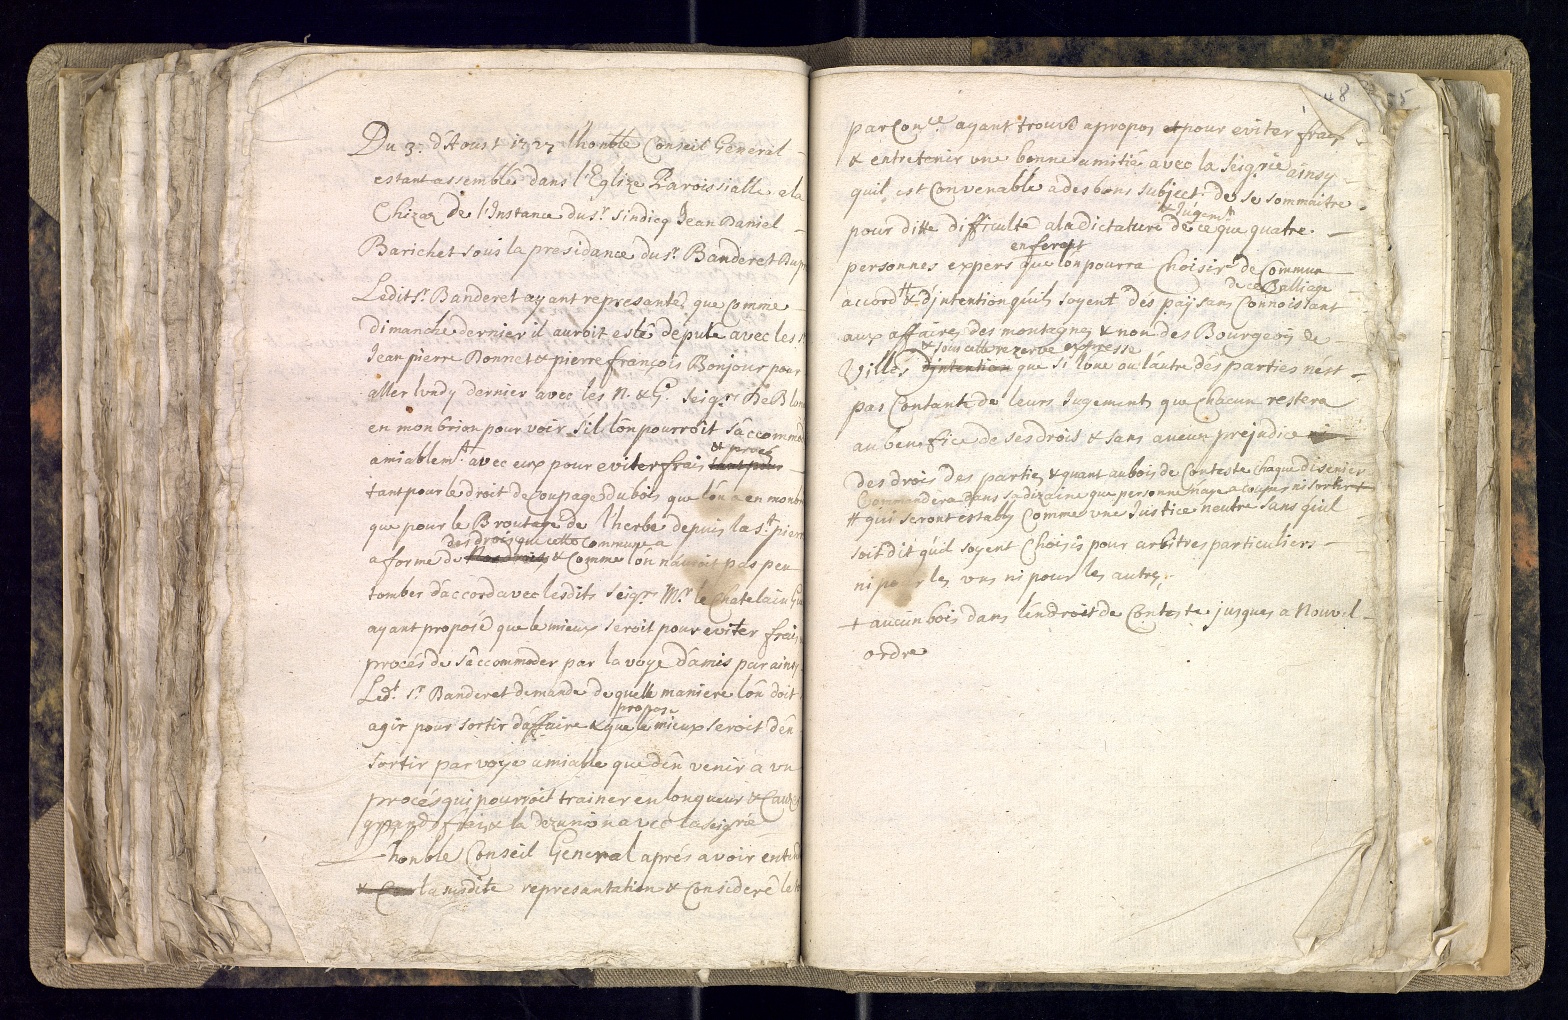 Du 3e. d'Aoust 1727 l'honble Conseil General
estant assemblé dans l'Eglize Paroissialle a la
Chizaz de l'Instance du sr. Sindicq Jean Daniel
Barichet sous la presidance du sr. Banderet
Ledit sr. Banderet ayant representé que Comme
Dimanche dernier il auroit estés députe avec les s
Jean pierre Donnet & pierre françois Bonjour pour
aller lundy dernier avec les N. & G. Seigrs De Blon
en monbrion pour voir s'il lon pourroit s'accommod
& procez
amiablemt avec eux pour eviter frais
tant pour le droit de coupage du bois que l'on a en monbr
que pour le Broutage de l'herbe depuis la St. pierr
des drois que cette commune a
a forme de & Comme l'on n'auroit pas peu
tomber d'accord avec lesdits Seigrs Mr. le Chatelain
ayant proposé que le mieux seroit pour eviter frais
procés de s'accommoder par la voye d'amis par ainsy
Ledt. Sr. Banderet demande de quelle maniere l'on doit
propose
agir pour sortir d'affaire & que le mieux seroit d'en
sortir par voye amiable que d'en venir a un
procés qui pourroit trainer en longueur & Cauzer
grands frais & la dezunion avec la seigrie
l'honble Conseil General aprés avoir entendu
la susdite representation & Consideré le
48
5
par Conce ayant trouvé apropos et pour eviter frais
& entretenir une bonne amitié avec la Seigrie ainsy
quil est Convenable a des bons subject de se sommaitre
le Jugemt
pour ditte difficulté a la dictature de ce que quatre
en feront
personnes expers que lon pourra Choisir de Commun
de ce Balliage
accord & d'intention quils soyent des paysans Connoissant
aux affaires des montagnes & non des Bourgeois de
& sous cette rezerve expresse
Villes Dintention que si l'une ou l'autre des parties nest
pas Contante de leurs Jugements que Chacun restera
au benefice de ses drois & sans aucun prejudice
des drois des parties & quant au bois de Conteste Chaque disenier
Commandera dans sa dizaine que personne naye a couper ni sortir +
# qui seront establis Comme une Justice neutre sans quil
soit dit quil soyent Choisis pour arbitres particuliers
ni pour les uns ni pour les autres.
+ aucun bois dans l'endroit de Conteste jusques a Nouvel
ordre